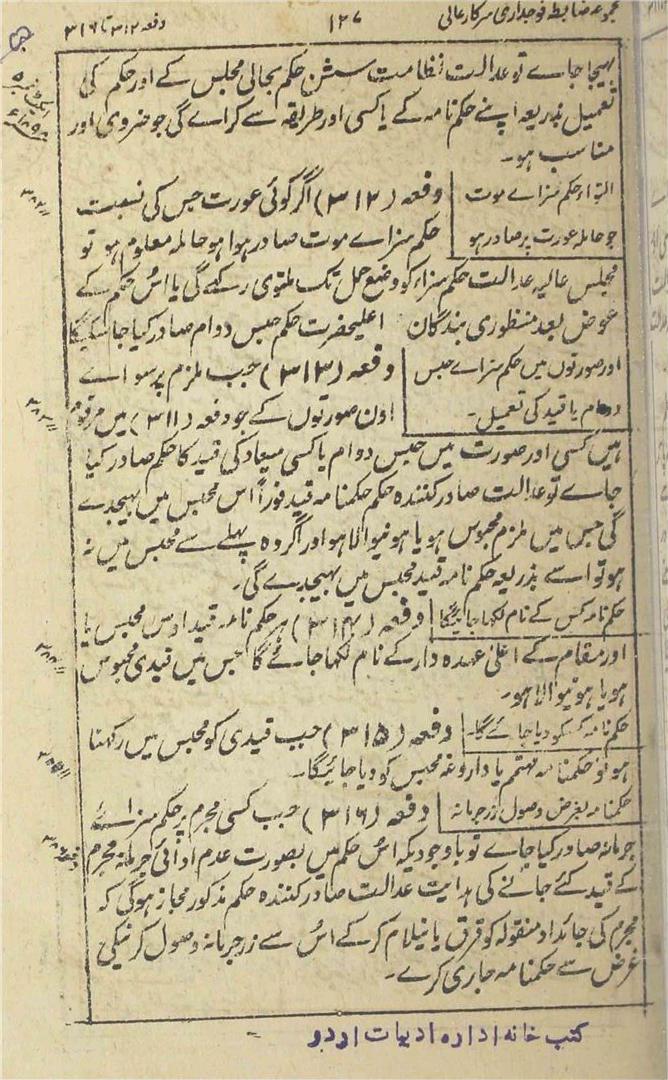 مجموعہ ضابطہ فوجداری سرکار عالی
۱۲۷
دفعہ ۳۱۲ تا ۳۱۶
بہیجا جاے تو عدالت نظامت سشن حکم بحالی مجلس کے اور حکم کی
تعمیل بذریعہ اپنے حکم نامہ کے یا کسی اور طریقہ سے کراے گی جو ضروری اور
مناسب ہو۔
التواء حکم سزاے موت
جو حاملہ عورت پر صادر ہو
دفعہ (۳۱۲) اگر کوئی عورت جس کی نسبت
حکم سزاے موت صادر ہوا ہو حاملہ معلوم ہو تو
مجلس عالیہ عدالت حکم سزاء کو وضع حمل تک ملتوی رکہے گی یا اُس حکم کے
عوض بعد منظوری بندگان اعلیحضرت حکم حبس دوام صادر کیا جاسکیگا
اور صورتوں میں حکم سزاے حبس
دوام یا قید کی تعمیل۔
دفعہ (۳۱۳) جب ملزم پر سواے
اون صورتوں کے جو دفعہ (۳۱۱) میں مرقوم
ہیں کسی اور صورت میں حبس دوام یا کسی میعاد کی قید کا حکم صادر کیا
جاے تو عدالت صادر کنندہ حکم حکمنامہ قید فوراً اس محبس میں بہیجدے
گی جس میں ملزم محبوس ہو یا ہونیوالا ہو اور اگر وہ پہلے سے محبس میں نہ
ہو تو اسے بذریعہ حکم نامہ قید محبس میں بہیجدے گی۔
حکم نامہ کس کے نام لکہا جائیگا
دفعہ (۳۱۴) ہر حکم نامہ قید اوس محبس یا
اور مقام کے اعلیٰ عہدہ دار کے نام لکہا جائے گا جس میں قیدی محبوس
ہو یا ہونیوالا ہو۔
حکم نامہ کسکو دیا جائے گا۔
دفعہ (۳۱۵) جب قیدی کو محبس میں رکہنا
ہو تو حکمنامہ مہتمم یا داروغہ محبس کو دیا جائیگا۔
حکمنامہ بغرض وصول زر جرمانہ
دفعہ (۳۱۶) جب کسی مجرم پر حکم سزائے
جرمانہ صادر کیا جاے تو باوجودیکہ اُس حکم میں بصورت عدم ادائی جرمانہ مجرم
کے قید کئے جانے کی ہدایت عدالت صادر کنندہ حکم مذکور مجاز ہوگی کہ
مجرم کی جائداد منقولہ کو قرق یا نیلام کر کے اُس سے زر جرمانہ وصول کرنیکی
غرض سے حکمنامہ جاری کرے۔
کتب خانہ ادارہ ادبیات اردو